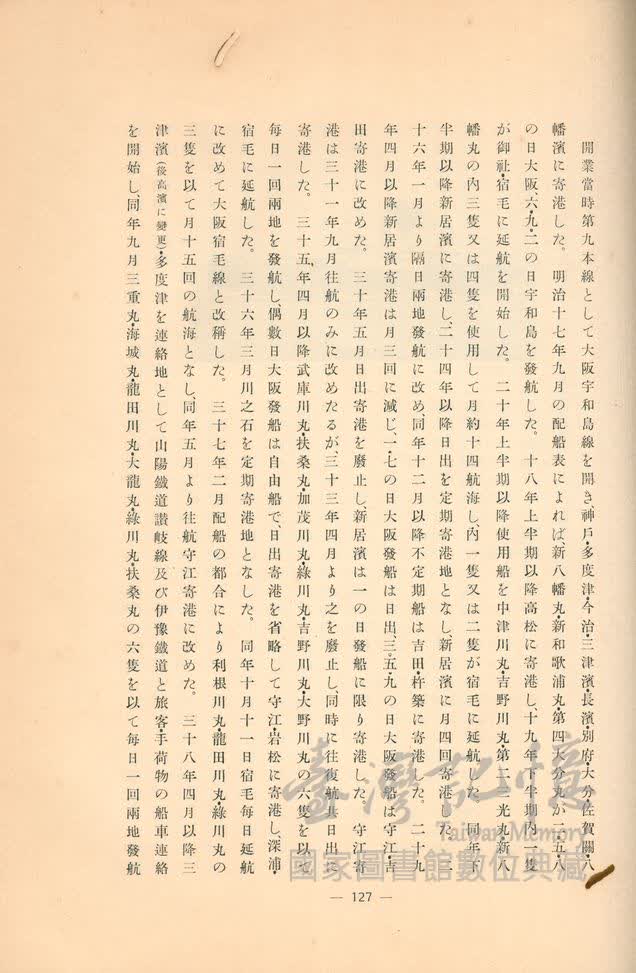 開業當時第九本線として大阪宇和島線を開き神戶・多度津・今治・三津濱・長濱・別府・大分・佐賀關・八
幡濱に寄港した。明治十七年九月の配船表によれば、新八幡丸・新和歌浦丸・第四大分丸が二・五・八
の日大阪、六・九・二の日宇和島を發航した。十八年上半期以降高松に寄港し、十九年下半期内一隻
が御社・宿毛に延航を開始した。二十年上半期以降使用船を中津川丸・吉野川丸・第二三光丸・新八
幡丸の内三隻又は四隻を使用して月約十四航海し、内一隻又は二隻が宿毛に延航した。同年下
半期以降新居濱に寄港し、二十四年以降日出を定期寄港地となし、新居濱に月四回寄港した。二
十六年一月より隔日兩地發航に改め、同年十二月以降不定期船は吉田・杵築に寄港した。二十九
年四月以降新居濱寄港は月三回に減じ、一・七の日大阪發船は日出、三・五・九の日大阪發船は守江・吉
田寄港に改めた。三十年五月日出寄港を廢止し、新居濱は一の日發船に限り寄港した。守江寄
港は三十一年九月往航のみに改めたるが、三十三年四月より之を廢止し、同時に往復航共日出に
寄港した。三十五年四月以降武庫川丸・扶桑丸・加茂川丸・綠川丸・吉野川丸・大野川丸の六隻を以て
每日一回兩地を發航し、偶數日大阪發船は自由船で、日出寄港を省略して守江・岩松に寄港し、深浦・
宿毛に延航した。三十六年三月川之石を定期寄港地となした。同年十月十一日宿毛每日延航
に改めて大阪宿毛線と改稱した。三十七年二月配船の都合により利根川丸・龍田川丸・綠川丸の
三隻を以て月十五回の航海となし、同年五月より往航守江寄港に改めた。三十八年四月以降三
津濱(後高濱に變更)・多度津を連絡地として山陽鐵道讚岐線及び伊豫鐵道と旅客・手荷物の船車連絡
を開始し、同年九月三重丸・海城丸・龍田川丸・大龍丸・綠川丸・扶桑丸の六隻を以て每日一回兩地發航
— 127 —
臺灣記憶
Taiwan Memory
國家圖書館數位典藏